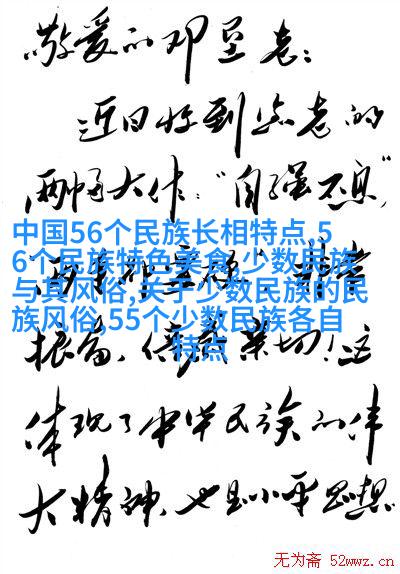 敬爱的邓垦老:
近日收到您老的
两幅大作:“自强不息”
中国56个民族长相特点,5
6个民族特色美食,少数民族
与其风俗,关于少数民族的民
族风俗,55个少数民族各自
特点
倍感亲切!这
体现了中华民族的伟
大精神,也是小平思想
无为斋 52wwz.cn